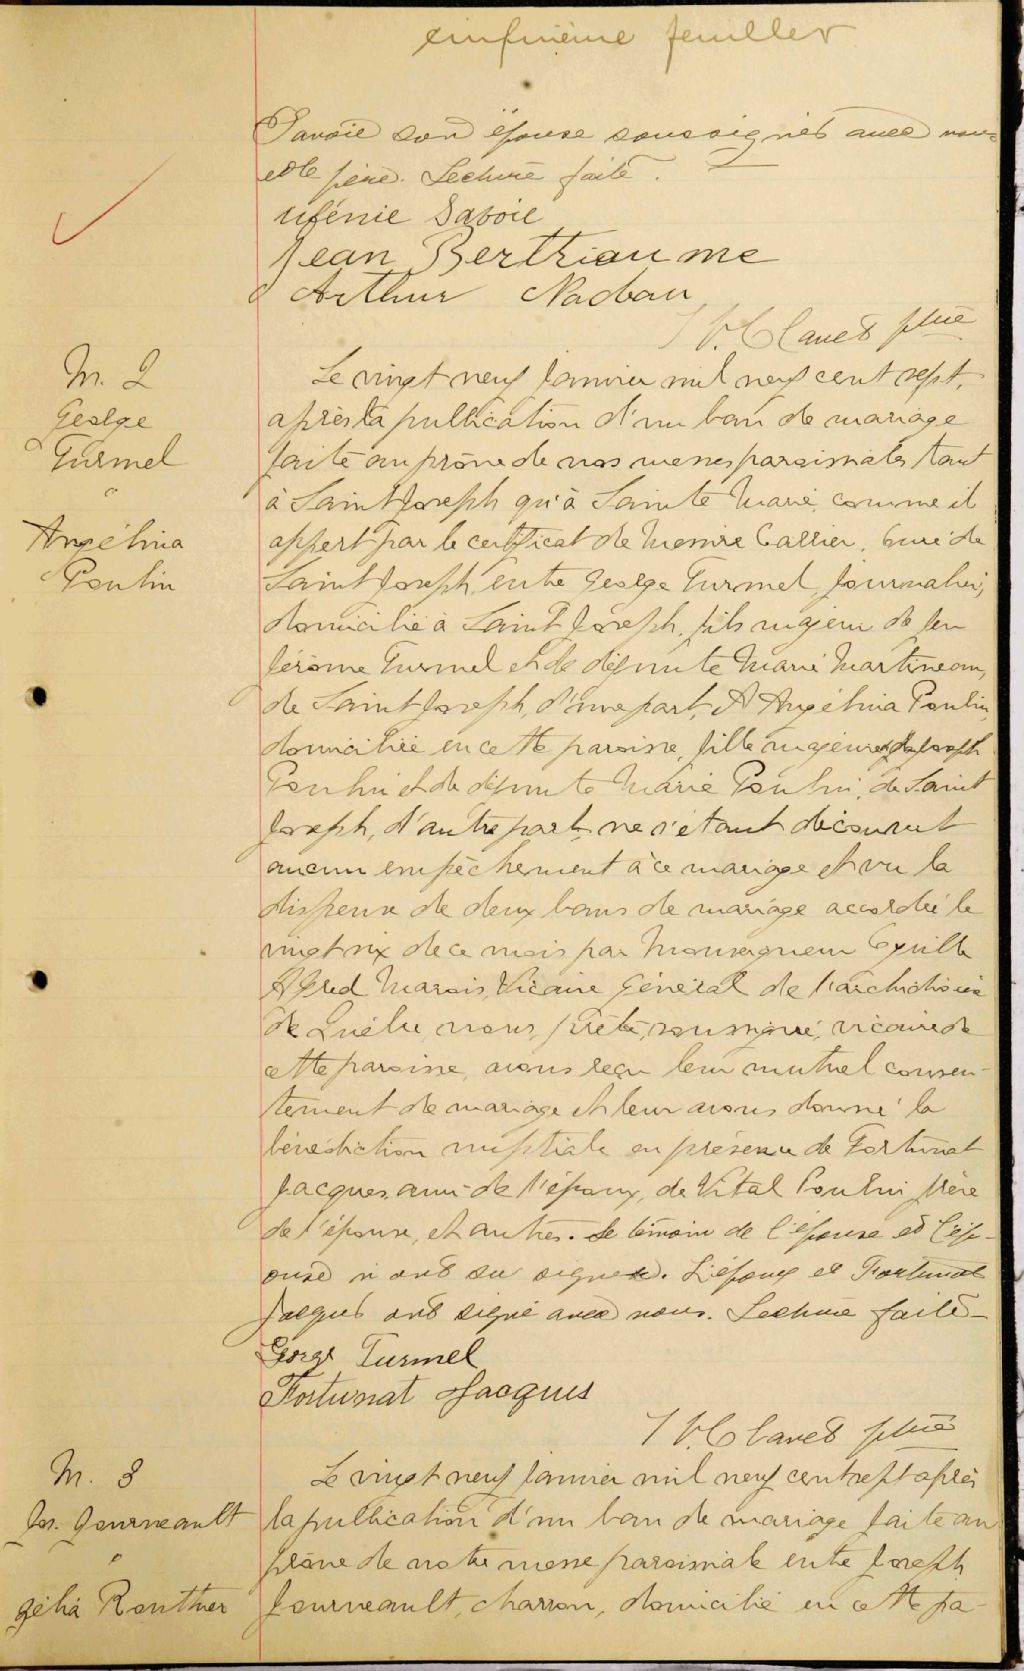 cinquième feuillet
Savoie son épouse soussignés avec nous
et le père. Lecture faite.
Uférie Savoie
Jean Berthiaume
Arthur Nadeau
J V. Clavet ptre
M. 2
George
Turmel
"
Angélina
Poulin
Le vingt neuf Janvier mil neuf cent sept,
après la publication d'un ban de mariage
faite au prône de nos messes paroissiales tant
à Saint Joseph qu'à Sainte Marie, comme il
appert par le certificat de Messire Carrier, Curé de
Saint Joseph, entre George Turmel, Journalier,
domicilié à Saint Joseph, fils majeur de feu
Jérôme Turmel et de défunte Marie Martineau,
de Saint Joseph, d'une part, Et Angélina Poulin,
domiciliée en cette paroisse, fille majeure de Joseph
Poulin et de défunte Marie Poulin, de Saint
Joseph, d'autre part, ne s'étant découvert
aucun empêchement à ce mariage et vu la
dispense de deux bans de mariage accordée le
vingt six de ce mois par Monseigneur Cyrille
Alfred Marois, Vicaire Général de l'archidiocèse
de Québec, nous, prêtre, soussigné, vicaire de
cette paroisse, avons reçu leur mutuel consen-
tement de mariage et leur avons donné la
bénédiction nuptiale en présence de Fortunat
Jacques, ami de l'époux, de Vital Poulin, frère
de l'épouse, et autres. Le témoin de l'épouse et l'ép-
ouse n'ont su signer. L'époux et Fortunat
Jacques ont signé avec nous. Lecture faite-
George Turmel
Fortunat Jacques
J V. Clavet ptre
M. 3
Jos. Journeault
"
gélia Routhier
Le vingt neuf Janvier mil neuf cent sept après
la publication d'un ban de mariage faite au
prône de notre messe paroissiale entre Joseph
Journeault, charron, domicilié en cette pa-